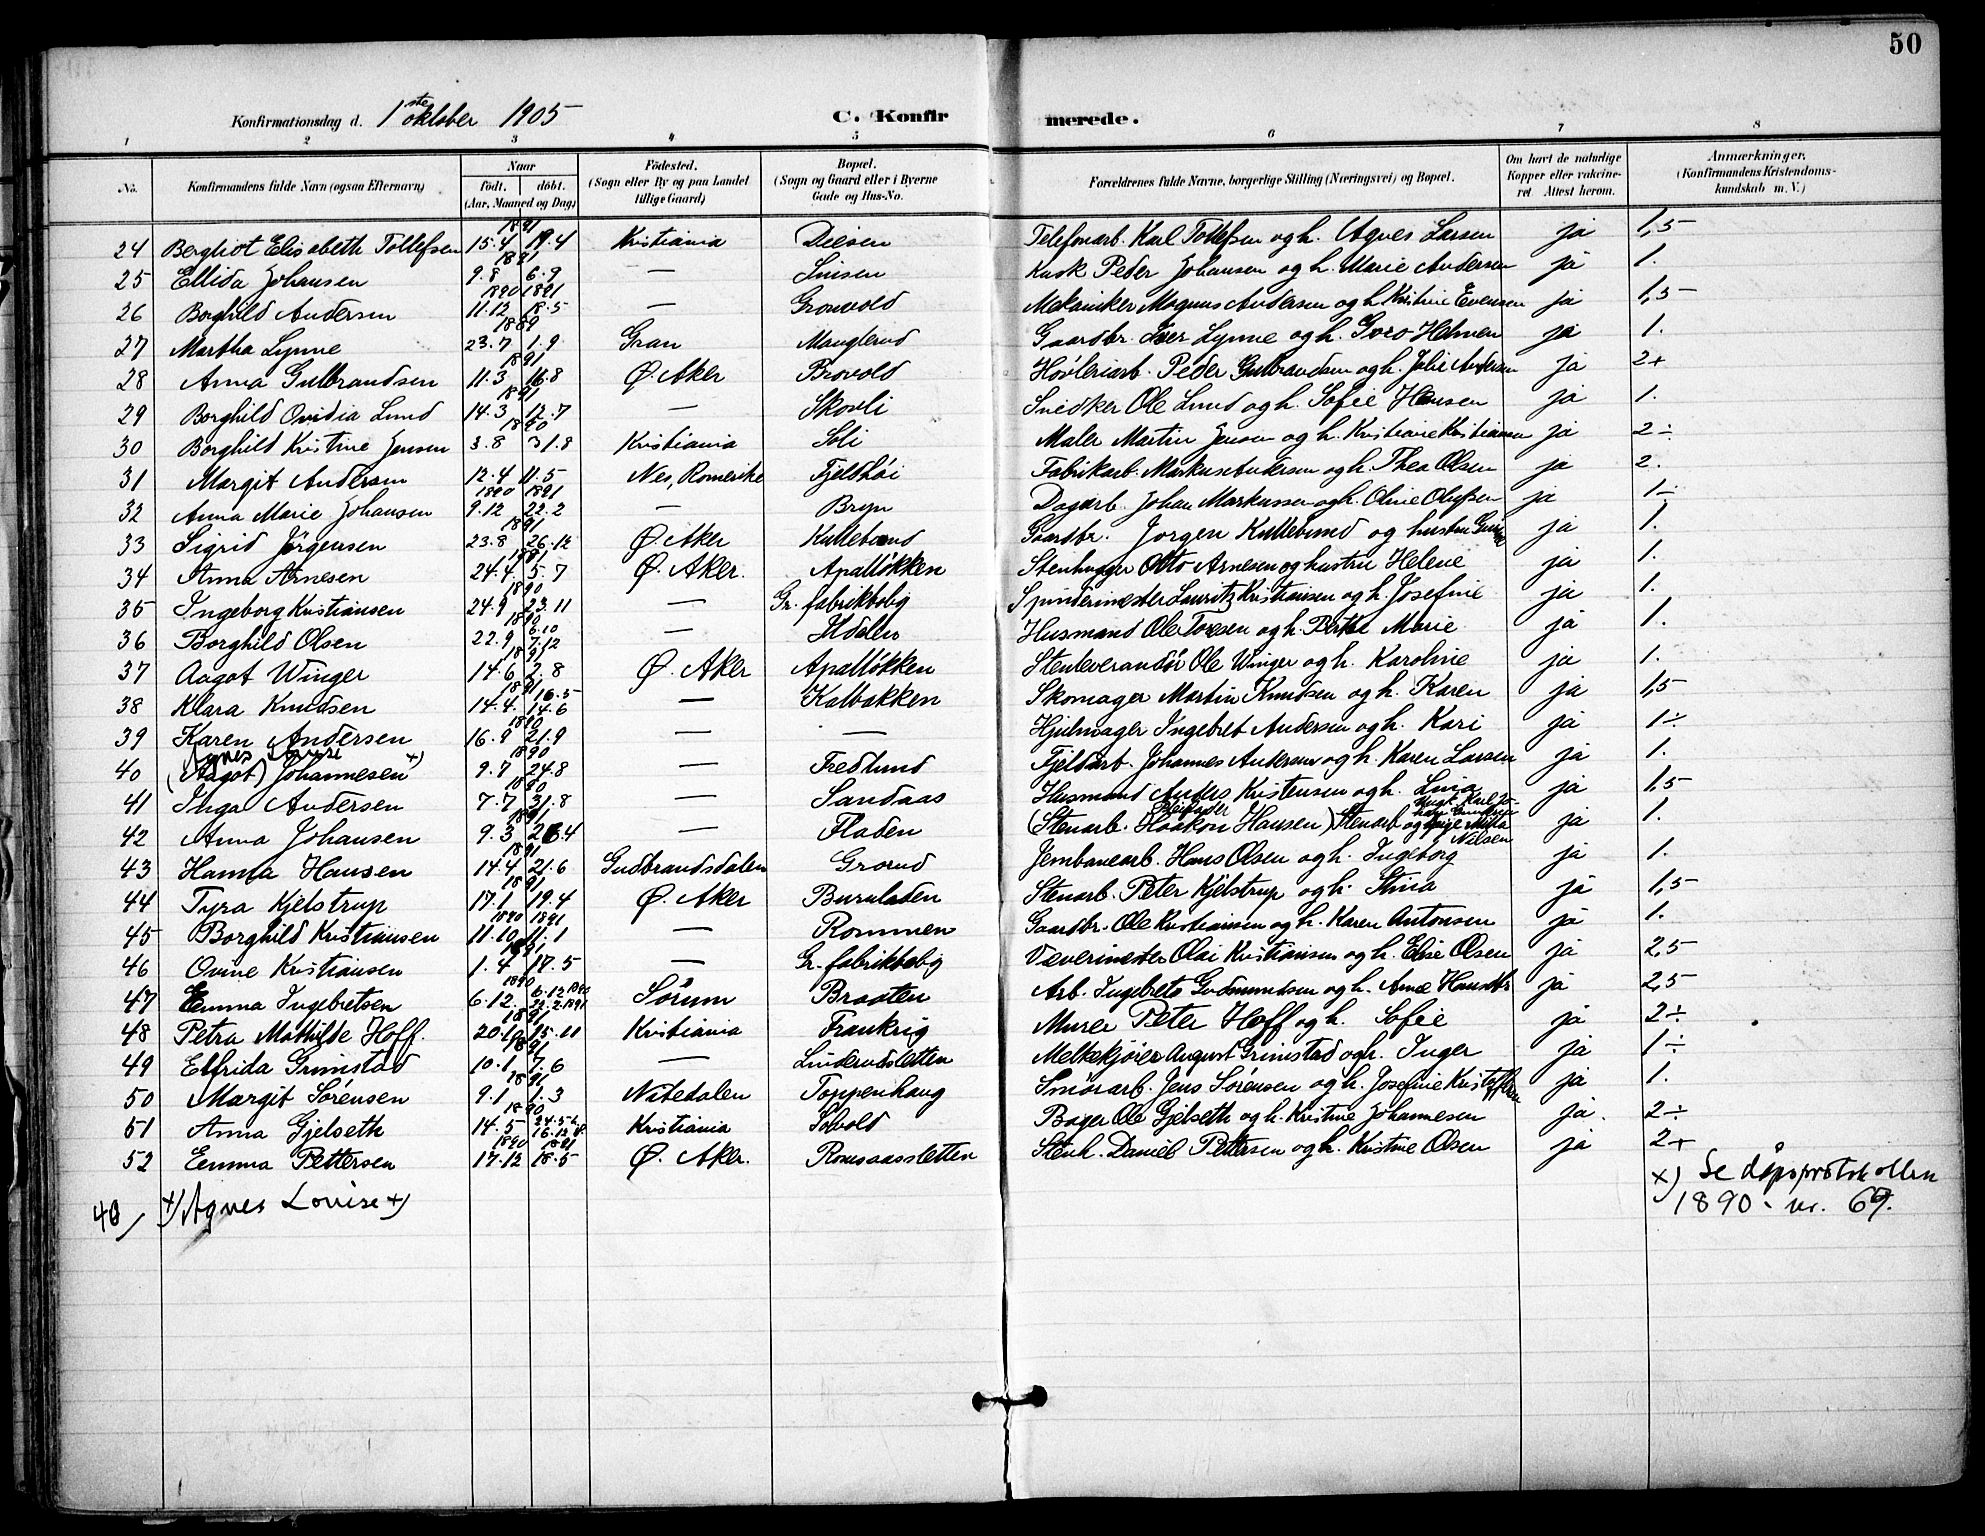 50
Konfirmationsdag d. 1ste oktober 1905
C. Konfirmerede.
1 2 3 4 5 6 7 8
No. Konfirmandens fulde Navn (ogsaa Efternavn) Naar født. døbt. (Aar, Maaned og Dag) Fødested. (Sogn eller By og paa Landet tillige Gaard) Bopæl. (Sogn og Gaard eller i Byerne Gade og Hus-No. Forældrenes fulde Navne, borgerlige Stilling (Næringsvei) og Bopæl. Om havt de naturlige Kopper eller vaccineret. Attest herom. Anmærkninger. (Konfirmandens Kristendomskundskab m. V.)
24 Bergliot Elisabeth Tollefsen 1891 15.4 19.4 Kristiania Disen Telefonarb. Karl Tollefsen og h. Agnes Larsen ja 1,5
25 Ellida Johansen 1891 9.8 6.9 — Sinsen Kusk Peder Johansen og h. Marie Andersen ja 1.
26 Borghild Andersen 1890 1891 11.12 18.5 — Gronvold Mekaniker Magnus Andersen og h Kristine Evensen ja 1,5
27 Martha Lynne 1889 23.7 1.9 Gran Manglerud Gaardbr. Iver Lynne og h. Goro Helmen ja 1.
28 Anna Gulbrandsen 1891 11.3 16.8 Ø. Aker Brovold Høvleriarb. Peder Gulbrandsen og h. Julie Andersen ja 2+
29 Borghild Ovidia Lund 1891 14.3 12.7 — Skovli Snedker Ole Lund og h. Sofie Hansen ja 1.
30 Borghild Kristine Jensen 1890 3.8 31.8 Kristiania Soli Maler Martin Jensen og h. Kristine Kristiansen ja 2÷
31 Margit Andersen 12.4 11.5 Nes, Romerike Fjeldhøi Fabrikarb. Markus Andersen og h. Thea Olsen ja 2.
32 Anna Marie Johansen 1890 1891 9.12 22.2 — Bryn Dagarb. Johan Markussen og h. Oline Olufsen ja 1÷
33 Sigrid Jørgensen 1891 23.8 26.12 Ø. Aker Kullebund Gaardbr. Jorgen Kullebund og hustru ja 1.
34 Anna Arnesen 1891 24.4 5.7 Ø. Aker. Apalløkken Stenhugger Otto Arnesen og hustru Helene ja 1.
35 Ingeborg Kristiansen 1890 24.9 23.11 — Gr. fabrikbolig Spinderimester Lauritz Kristiansen og h. Josefine ja 1.
36 Borghild Olsen 1890 22.9 6.10 7.12 — Ødalen Husmand Ole Toresen og h. Berthe Marie ja 1.
37 Aagot Winger 1891 14.6 2.8 Ø. Aker Apalløkken Stenleverandør Ole Winger og h. Karoline ja 1.
38 Klara Knudsen 1891 14.4. 16.5 14.6 — Kalbakken Skomager Martin Knudsen og h. Karen ja 1,5
39 Karen Andersen 1890 16.9 21.9 — — Hjulmager Ingebret Andersen og h. Kari ja 1÷
Agnes Lovise
40 (Aagot) Johannesen x) 1890 9.7 24.8 — Fredlund Fjeldarb. Johannes Andersen og h. Karen Larsen ja 1.
41 Inga Andersen 1890 7.7 31.8 — Sandaas Husmand Anders Kristensen og h. Lina ja 1,5
42 Anna Johansen 1891 9.3 26.4 — Fladen (Stenarb. Haakon Hansen) Stenarb Nilsen ja 1.
43 Hanna Hansen 1891 14.4 21.6 Gudbrandsdalen Grorud Jernbanearb. Hans Olsen og h. Ingeborg ja 1.
44 Tyra Kjelstrup 1891 17.1 19.4 Ø. Aker Buruladen Stenarb. Peter Kjelstrup og h. Stina ja 1,5
45 Borghild Kristiansen 1890 1891 11.10 11.1 — Rommen Gaardbr. Ole Kristiansen og h. Karen Antonsen ja 1.
46 Ovine Kristiansen 1891 1.4 17.5 — Gr. fabrikbolig Væverimester Olai Kristiansen og h. Elise Olsen ja 2,5
47 Emma Ingebretsen 1890 6.12. 6.12 1890 22.2.1891 Sørum Braaten Arb. Ingebrets Gudmundsen og h. Ane ja 2,5
48 Petra Mathilde Hoff. 1891 20.10 15.11 Kristiania Frankrig Murer Peter Hoff og h. Sofie ja 2÷
49 Elfrida Grimstad 1891 10.1 7.6 — Linderudsletten Melkekjører August Grimstad og h. Inger ja 1÷
50 Margit Sørensen 1891 9.1 1.3 Nitedalen Toppenhaug Smørarb. Jens Sørensen og h. Josefine Kristoffersen ja 1.
51 Anna Gjelseth 1890 14.5 24.5 16.12 Kristiania Solvold Bager Ole Gjelseth og h. Kristine Johannesen ja. 2÷
52 Emma Pettersen 1890 1891 17.12 18.5 Ø. Aker. Romsaassletten Stenh. Daniel Pettersen og h. Kristine Olsen ja 2+
40, x) Agnes Lovise x)
x) Se dåpsprotokollen
1890 - nr. 69.